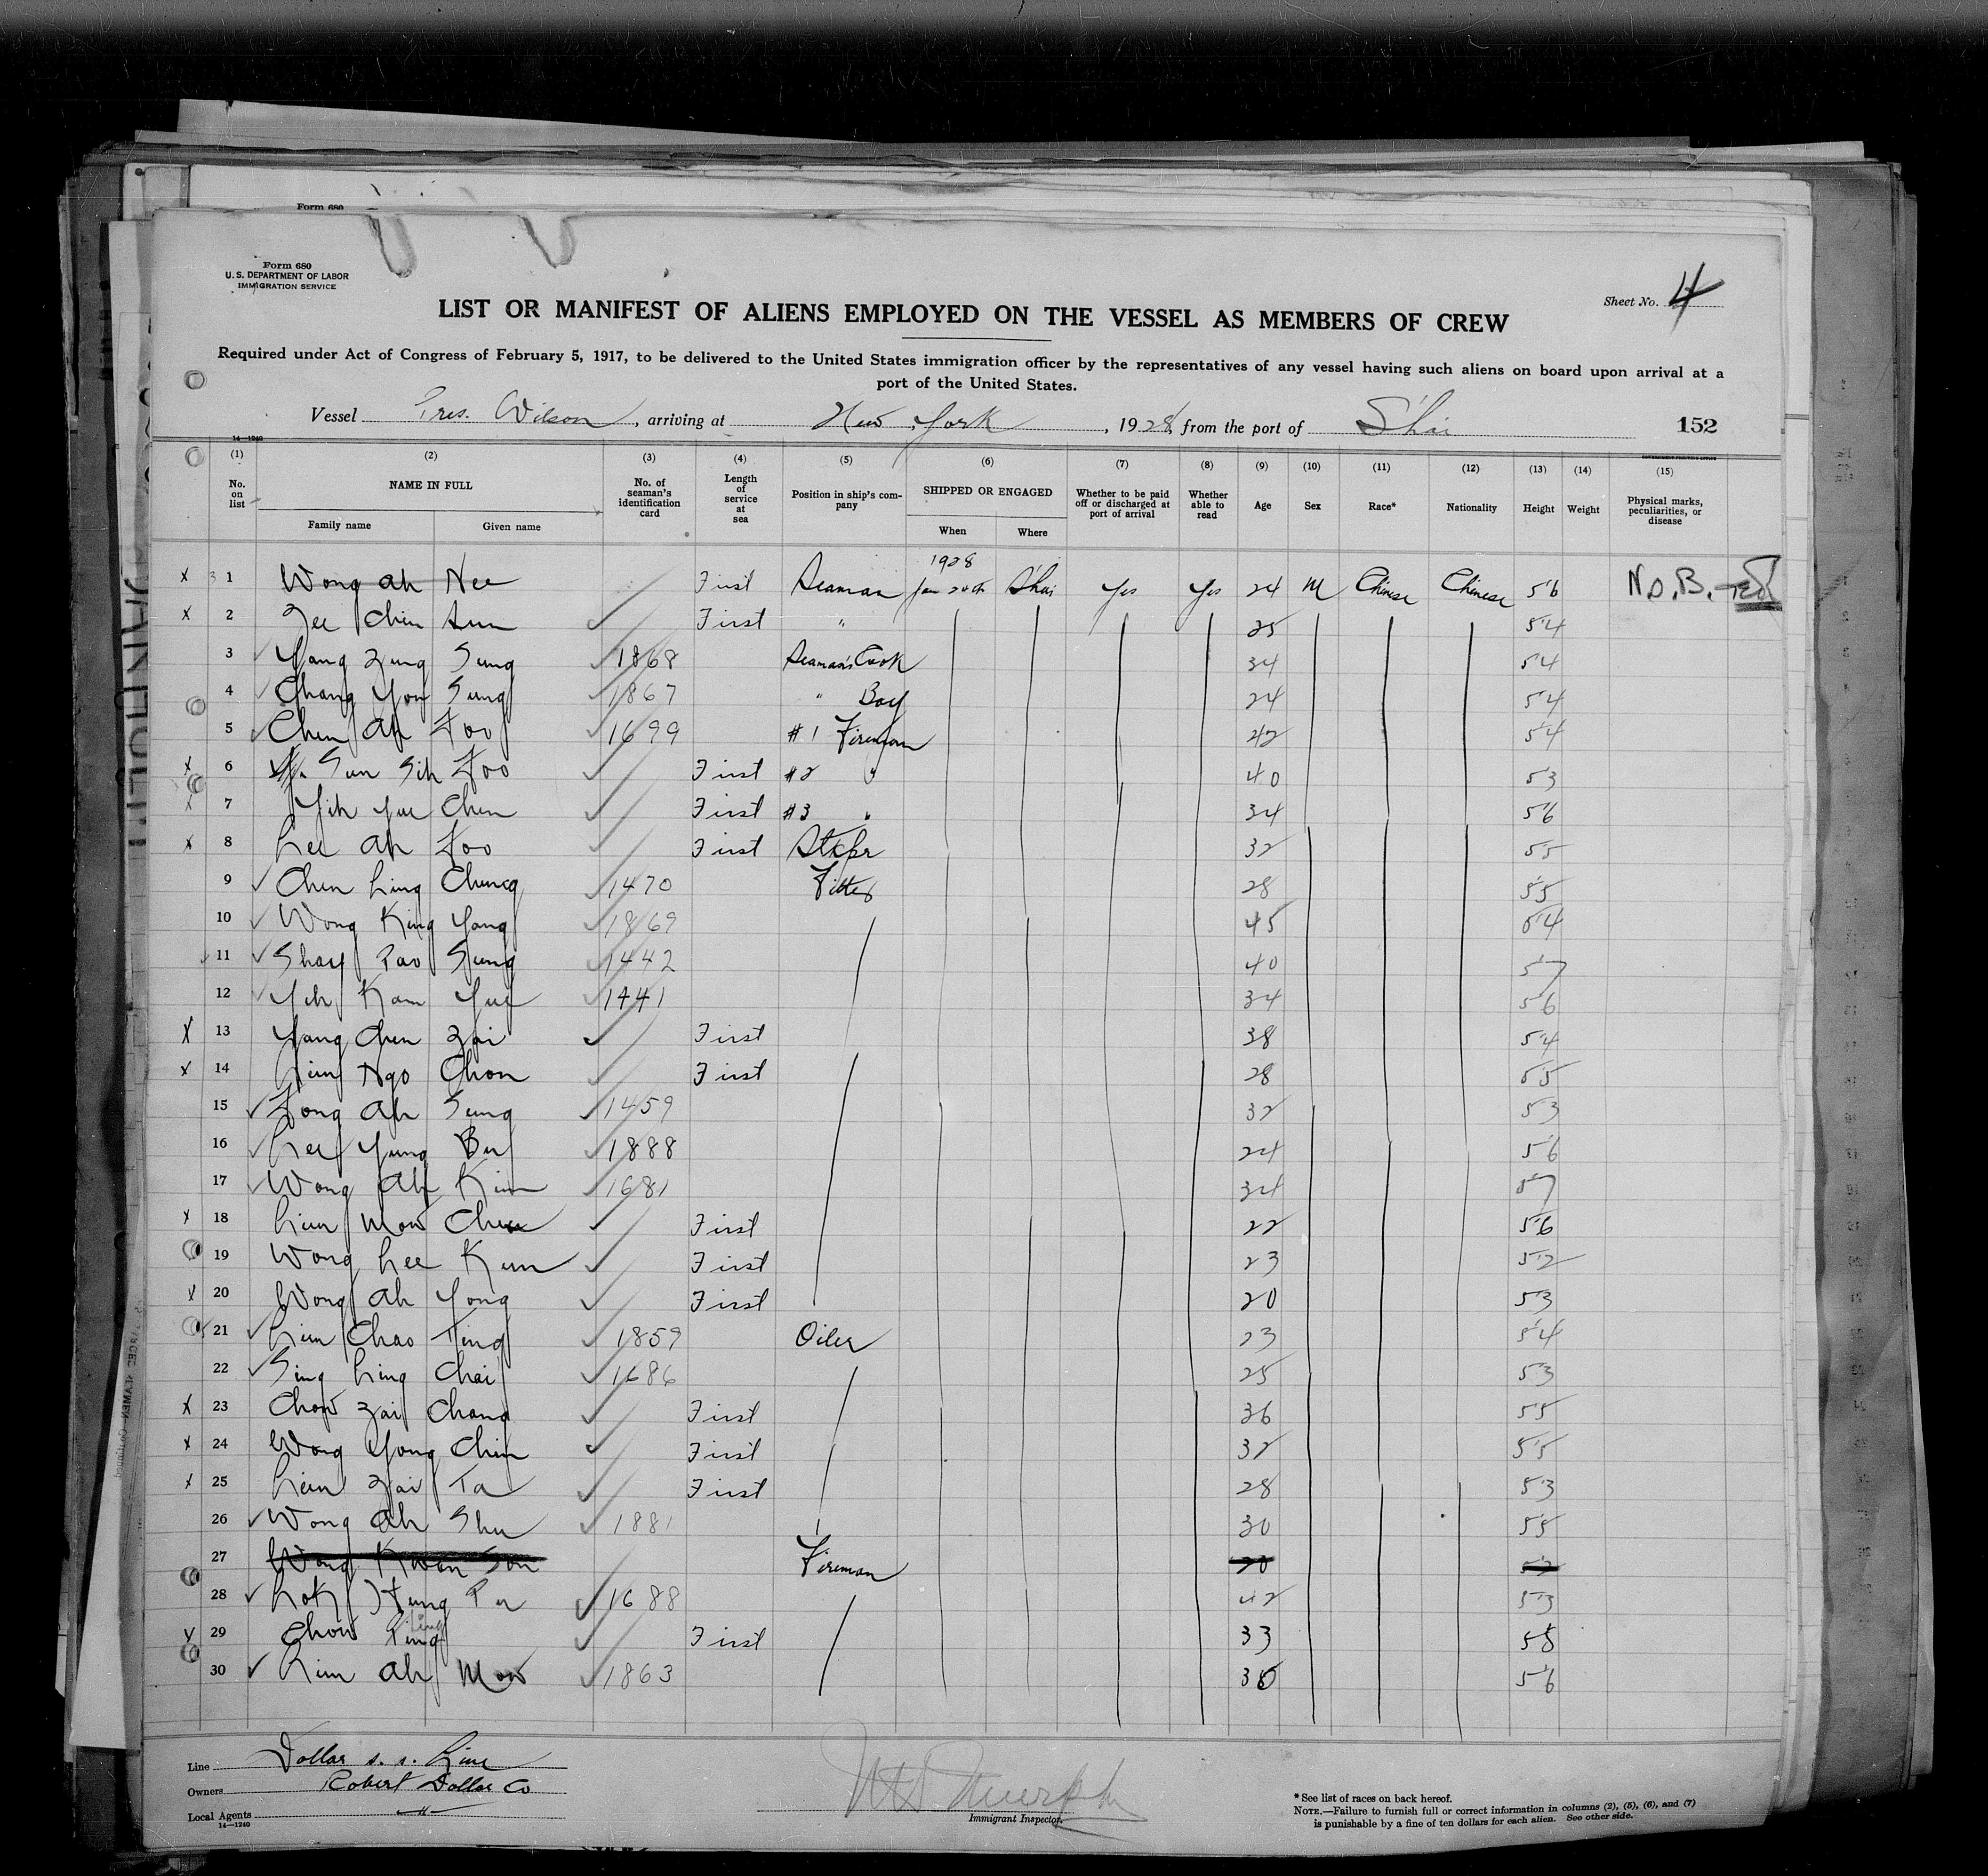 Form 680
Form 680
U. S. DEPARTMENT OF LABOR
IMMIGRATION SERVICE
Sheet No. 4
LIST OR MANIFEST OF ALIENS EMPLOYED ON THE VESSEL AS MEMBERS OF CREW
Required under Act of Congress of February 5, 1917, to be delivered to the United States immigration officer by the representatives of any vessel having such aliens on board upon arrival at a
port of the United States.
Vessel Pres. Wilson, arriving at New York, 1928, from the port of S'hai 152
14—1240
(1) (2) (3) (4) (5) (6) (7) (8) (9) (10) (11) (12) (13) (14) (15)
No. on list NAME IN FULL Family name Given name No. of seaman's identification card Length of service at sea Position in ship's company SHIPPED OR ENGAGED When Where Whether to be paid off or discharged at port of arrival Whether able to read Age Sex Race* Nationality Height Weight Physical marks, peculiarities, or disease
1928
x 3 1 Wong ah Nee First Seaman Jan 24th S'hai Yes Yes 24 M Chinese Chinese 5'6 N.O.B.
x 2 Zee Chin Sun First " 25 5'4
3 Yang Zung Sung 1868 Seaman's Cook 34 5'4
4 Chang You Sung 1867 " Boy 24 5'4
5 Chen Ah Foo 1699 #1 Fireman 42 5'4
x 6 Sun Sih Foo First #2 " 40 5'3
x 7 Yih Yue Chen First #3 " 34 5'6
x 8 Lee Ah Foo First Stkpr 32 5'5
9 Chen Ling Chung 1470 Fitter 28 5'5
10 Wong King Yang 1869 45 5'4
11 Shay Pao Sung 1442 40 5'7
12 Yih Kam Yue 1441 34 5'6
x 13 Yang Chen Zai First 38 5'4
x 14 Lim Ngo Chon First 28 5'5
15 Fong Ah Sung 1459 32 5'3
16 Lee Yung Bu 1888 24 5'6
17 Wong Ah Kim 1681 34 5'7
x 18 Lim Mow First 22 5'6
19 Wong Lee Kum First 23 5'2
x 20 Wong Ah Yong First 20 5'3
21 Lim Chao Ting 1859 Oiler 23 5'4
22 Sing Ling Chai 1686 25 5'3
x 23 Chow Zai Chang First 36 5'5
x 24 Wong Yong Chin First 32 5'5
x 25 Lim Zai Ta First 28 5'3
26 Wong Ah Shu 1881 30 5'5
27 Wong Kwan Son Fireman 20
28 Kok Hung Pu 1688 42 5'3
29 Chow Ling First 33 5'8
30 Lim Ah Mow 1863 5'6
Line Dollar S. S. Line
Owners Robert Dollar Co
Local Agents "
14—1240
Immigrant Inspector.
* See list of races on back hereof.
NOTE.—Failure to furnish full or correct information in columns (2), (5), (6), and (7)
is punishable by a fine of ten dollars for each alien. See other side.